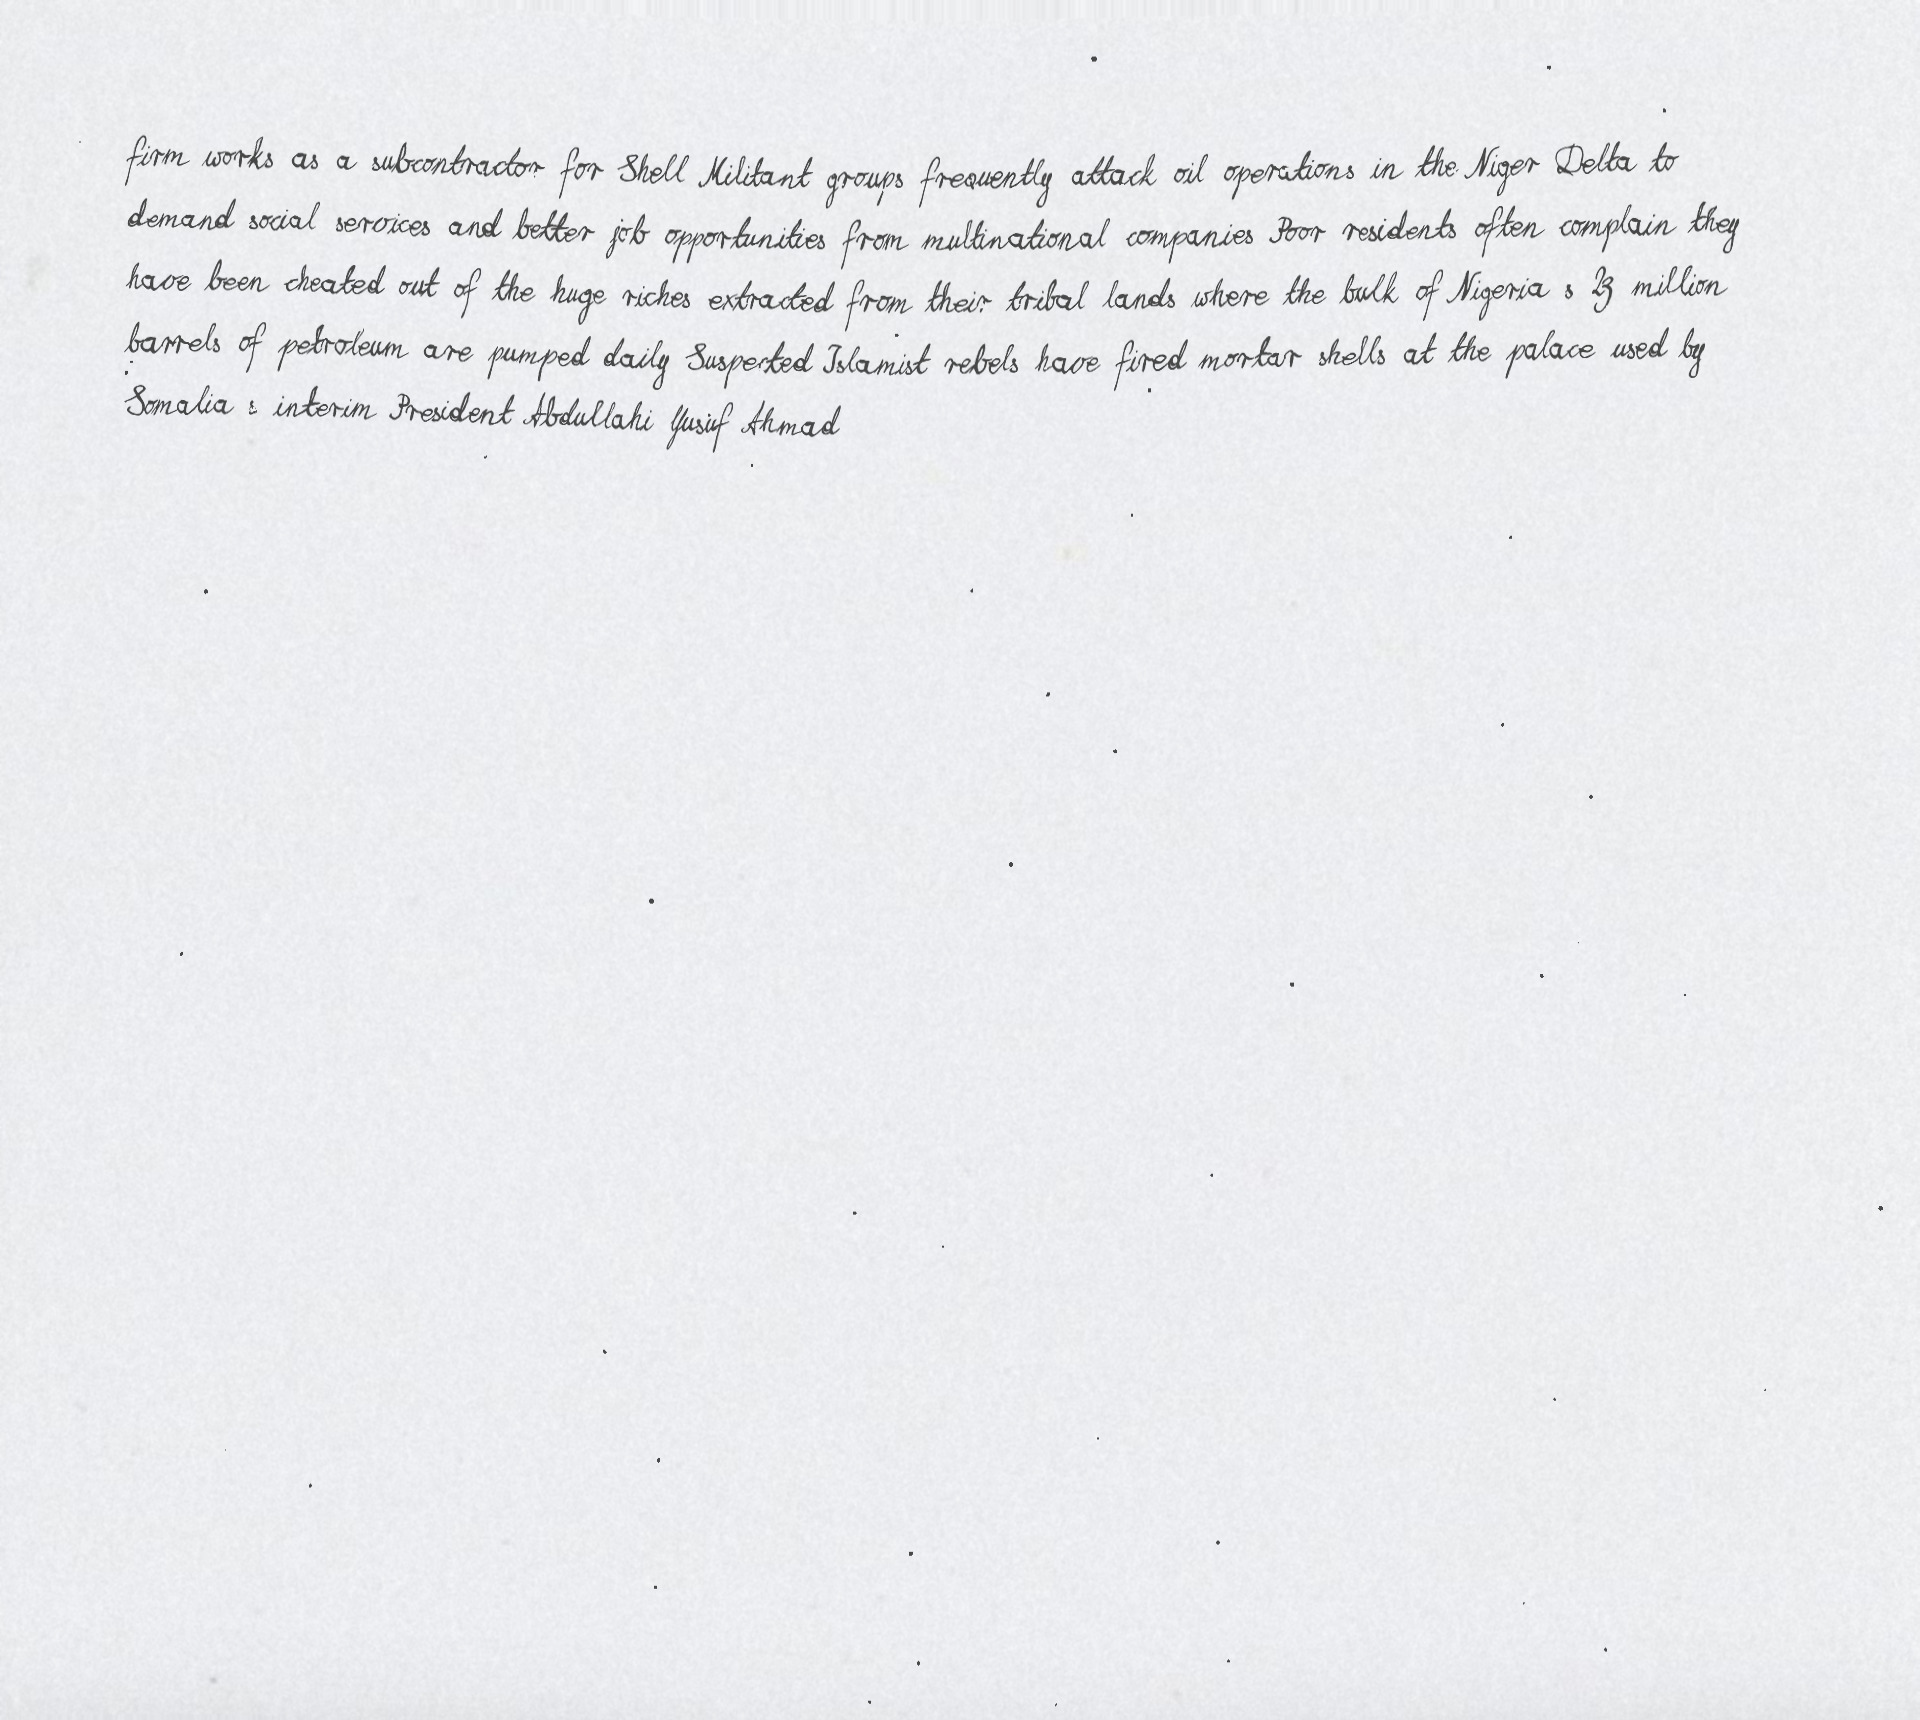 firm works as a subcontractor for Shell Militant groups frequently attack oil operations in the Niger Delta to
demand social services and better job opportunities from multinational companies Poor residents often complain they
have been cheated out of the huge riches extracted from their tribal lands where the bulk of Nigeria s 23 million
barrels of petroleum are pumped daily Suspected Islamist rebels have fired mortar shells at the palace used by
Somalia s interim President Abdullahi Yusuf Ahmad